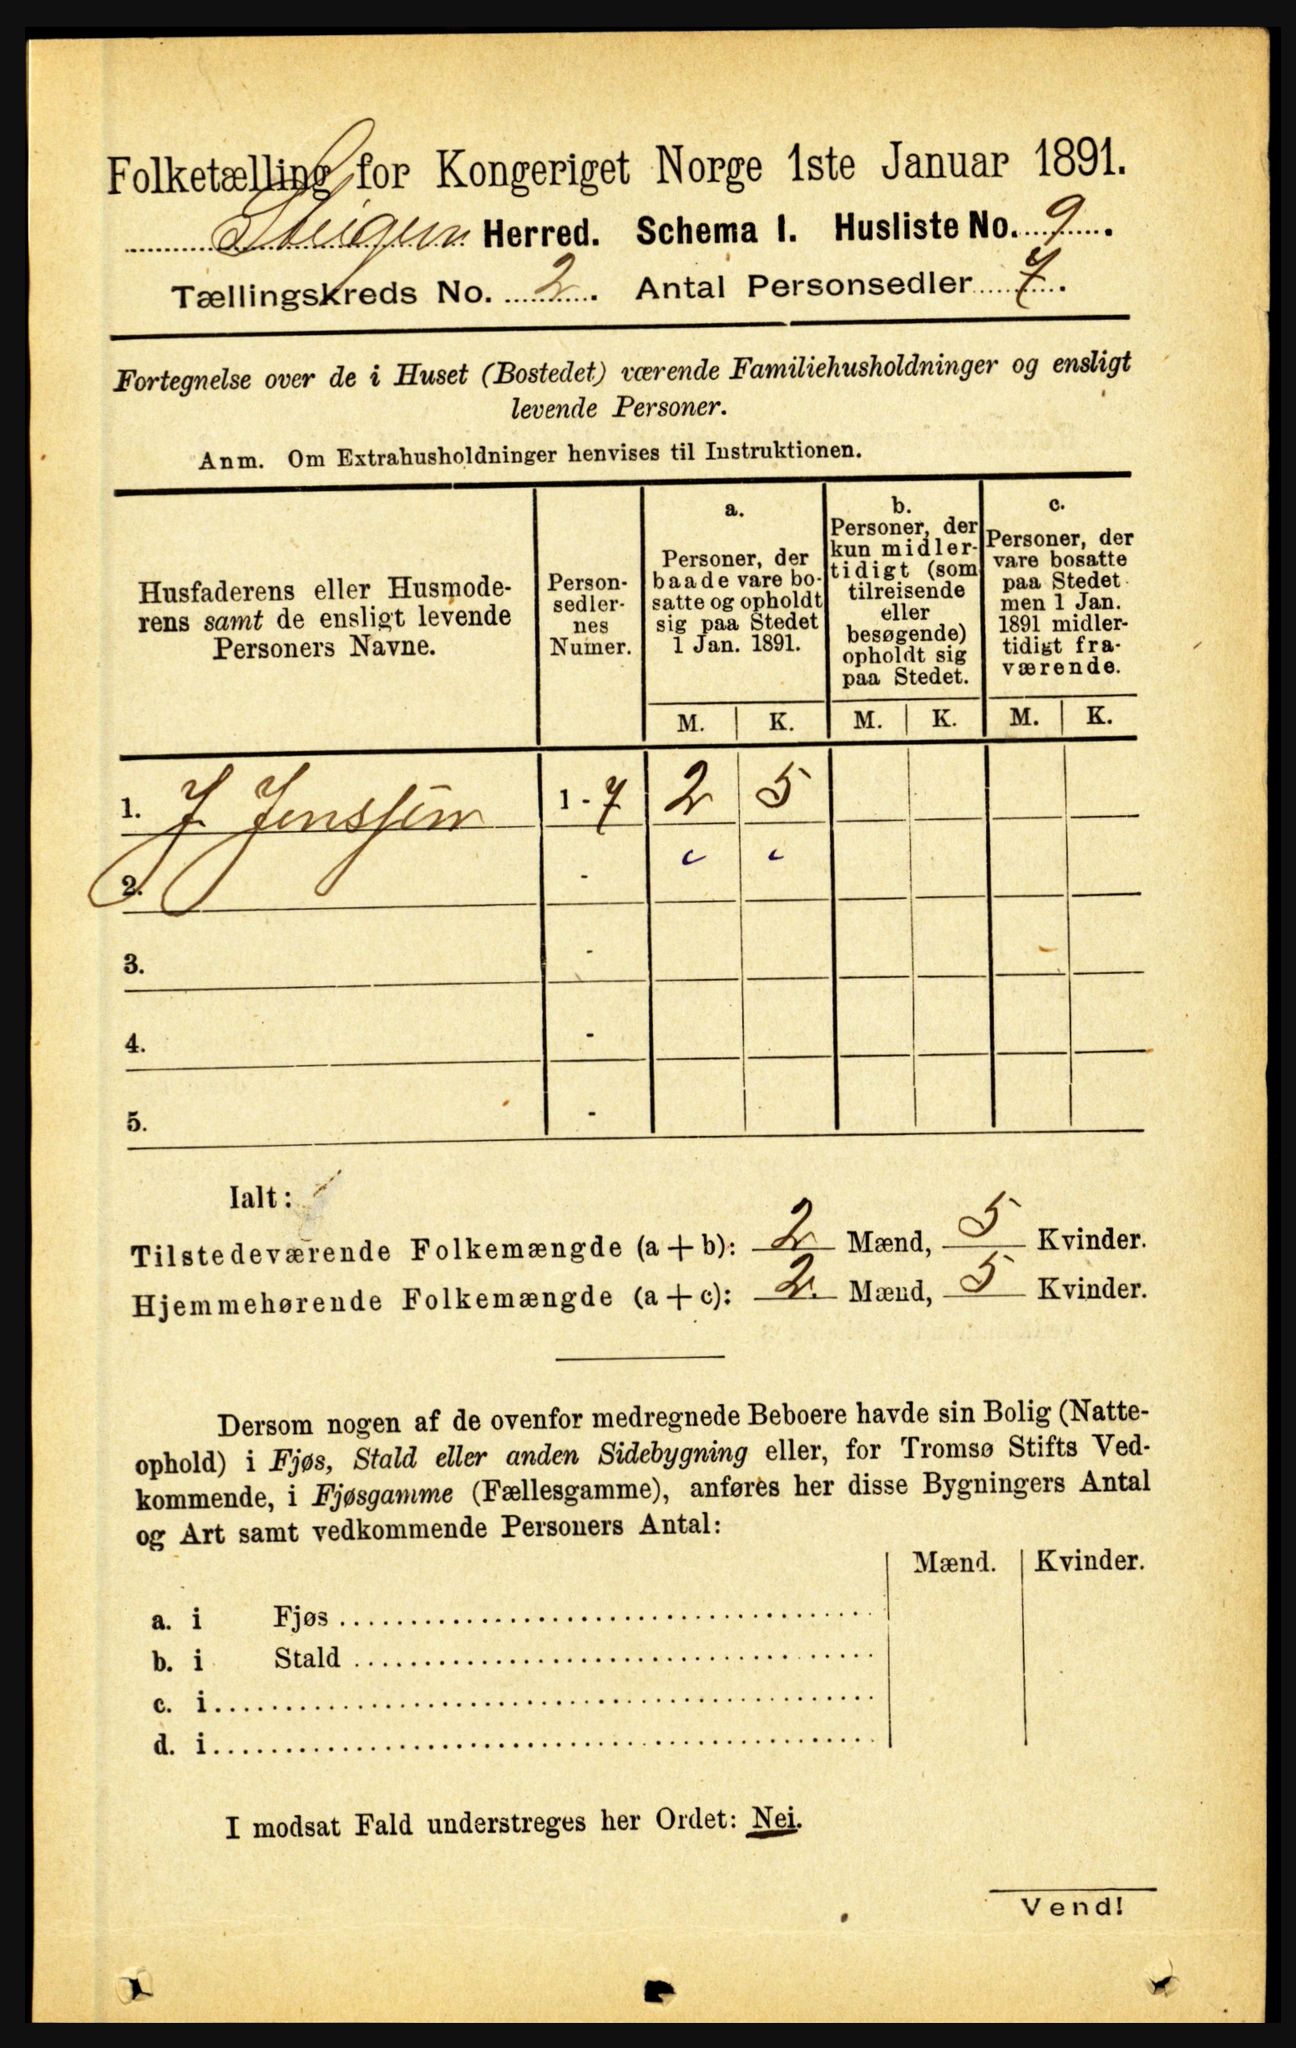 Folketælling for Kongeriget Norge 1ste Januar 1891.
Steigen Herred. Schema I. Husliste No. 9.
Tællingskreds No. 2. Antal Personsedler 7.
Fortegnelse over de i Huset (Bostedet) værende Familiehusholdninger og ensligt
levende Personer.
Anm. Om Extrahusholdninger henvises til Instruktionen.
Husfaderens eller Husmode-
rens samt de ensligt levende
Personers Navne.
Person-
sedler-
nes
Numer.
a.
Personer, der
baade vare bo-
satte og opholdt
sig paa Stedet
1 Jan. 1891.
b.
Personer, der
kun midler-
tidigt (som
tilreisende
eller
besøgende)
opholdt sig
paa Stedet.
c.
Personer, der
vare bosatte
paa Stedet
men 1 Jan.
1891 midler-
tidigt fra-
værende.
M. K. M. K. M. K.
1. J Jenssen 1 - 7 2 5
2. -
3. -
4. -
5. -
Ialt:
Tilstedeværende Folkemængde (a + b): 2 Mænd, 5 Kvinder.
Hjemmehørende Folkemængde (a + c): 2 Mænd, 5 Kvinder.
Dersom nogen af de ovenfor medregnede Beboere havde sin Bolig (Natte-
ophold) i Fjøs, Stald eller anden Sidebygning eller, for Tromsø Stifts Ved-
kommende, i Fjøsgamme (Fællesgamme), anføres her disse Bygningers Antal
og Art samt vedkommende Personers Antal:
Mænd. Kvinder.
a. i Fjøs
b. i Stald
c. i
d. i
I modsat Fald understreges her Ordet: Nei.
Vend!